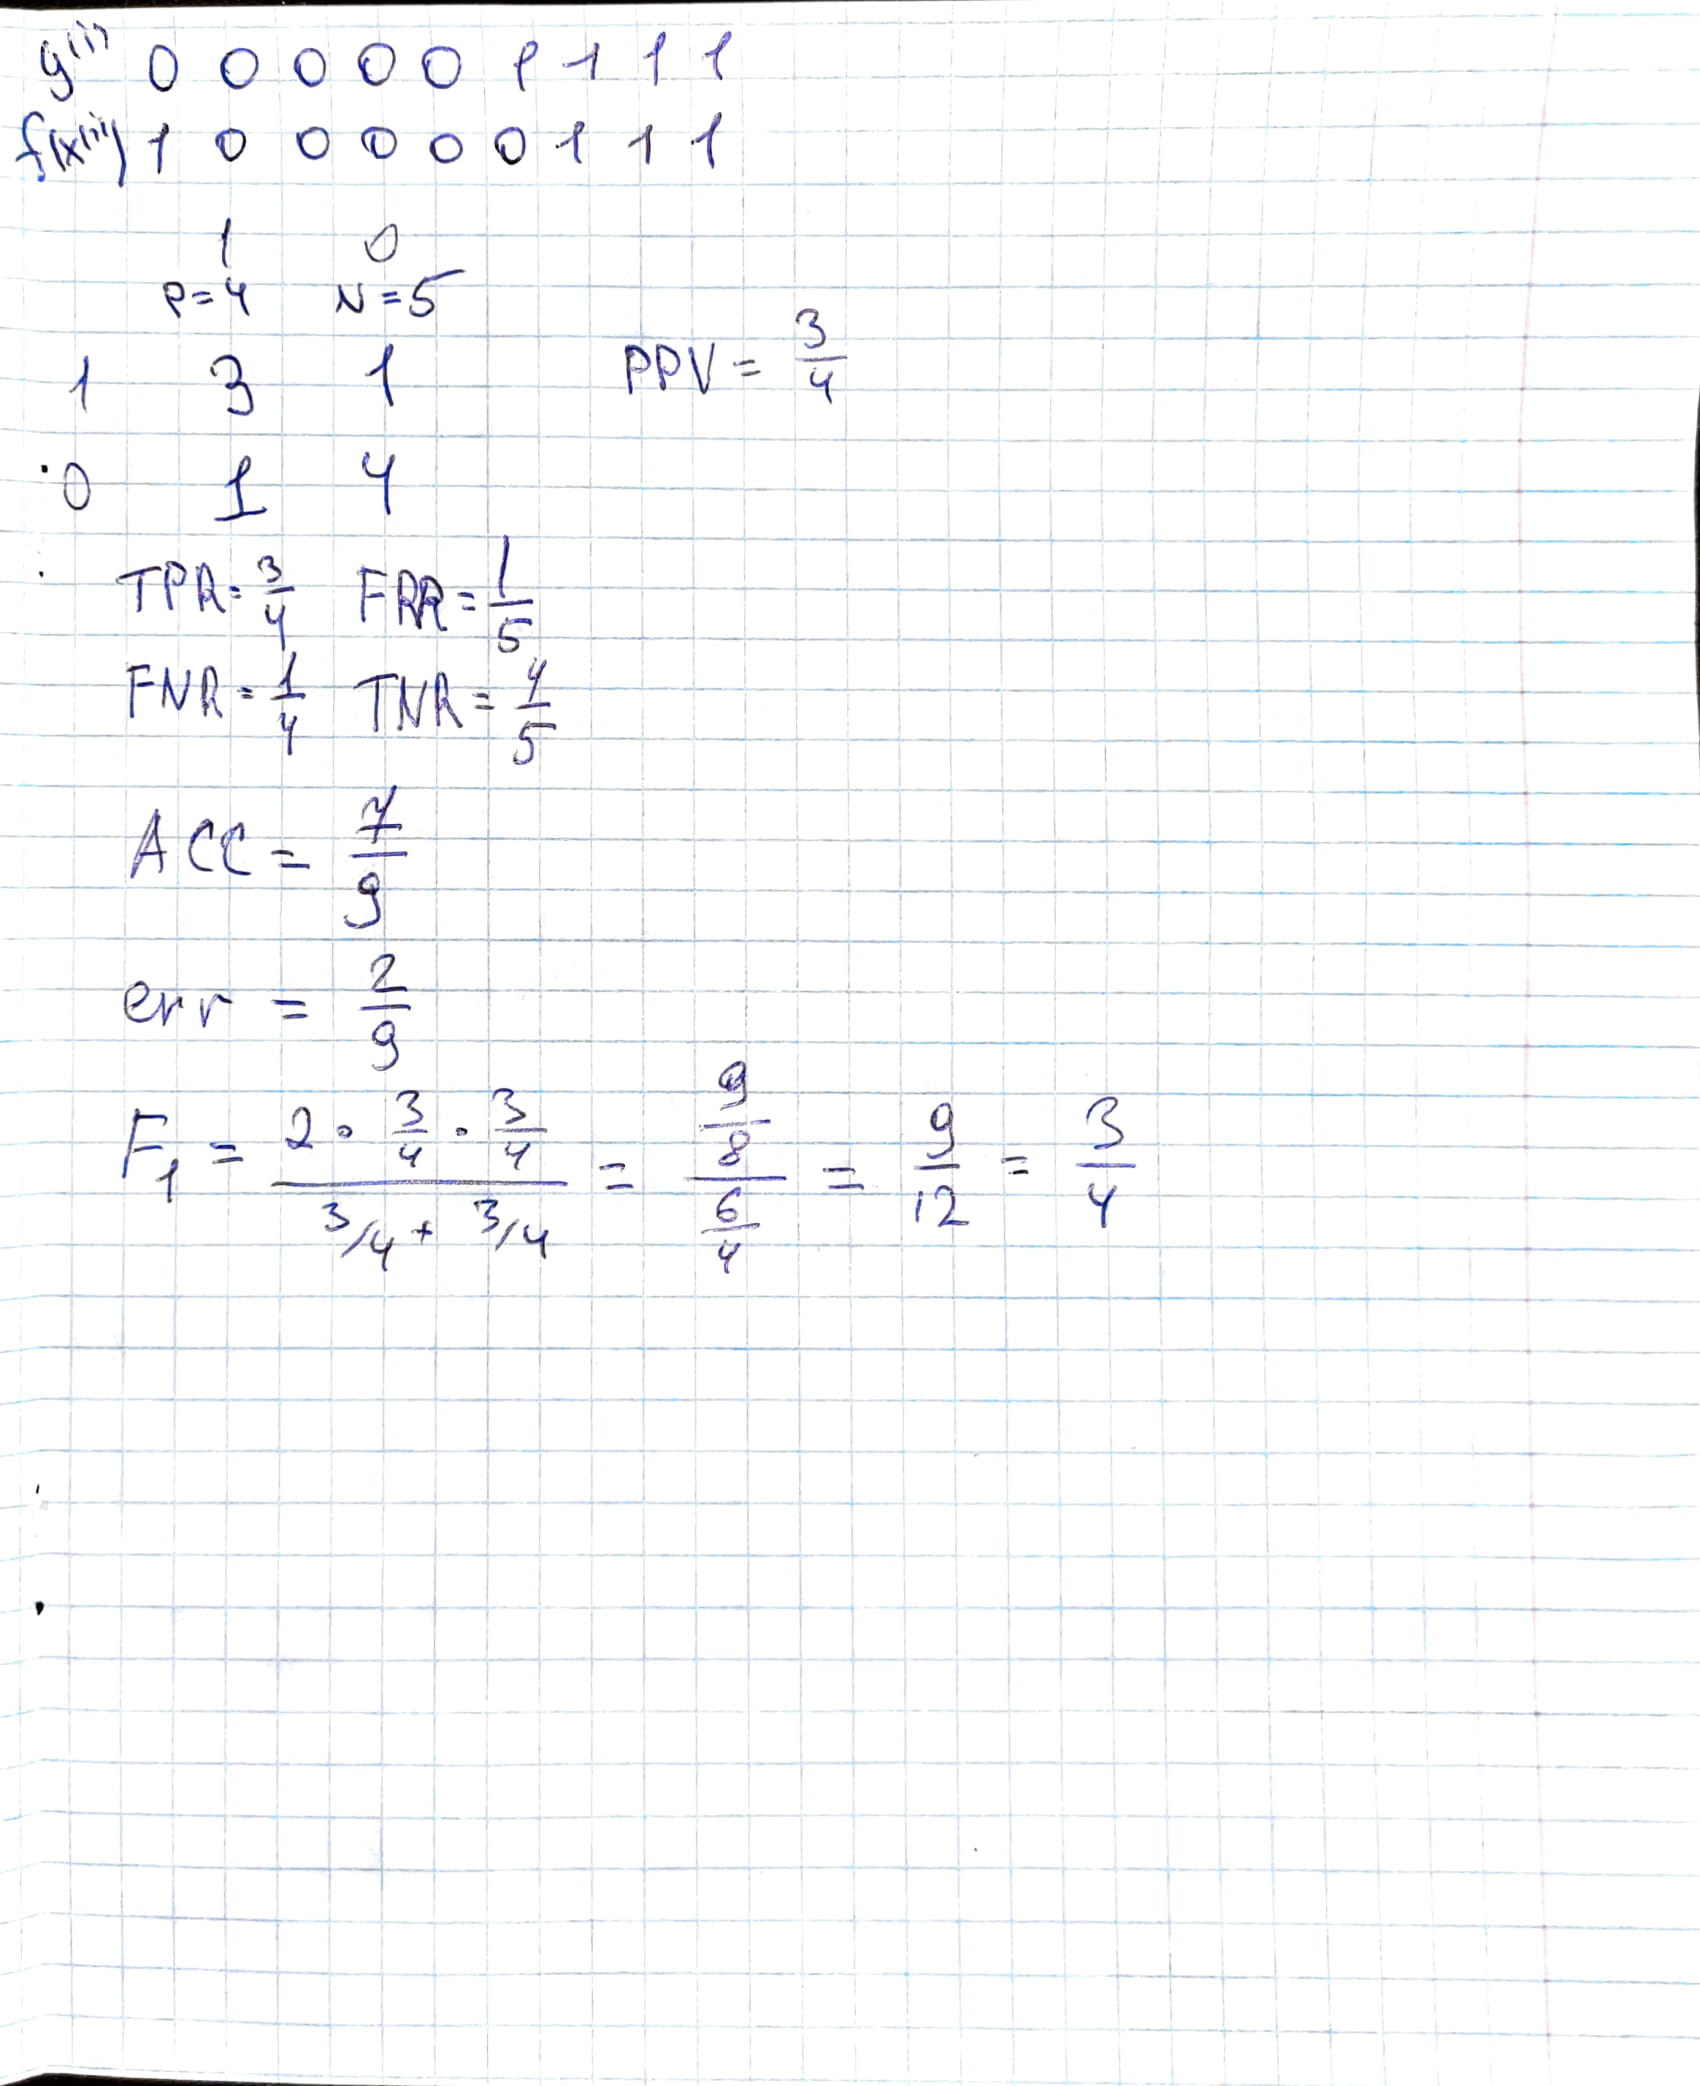 y⁽ⁱ⁾ 0 0 0 0 0 1 1 1 1
f(x⁽ⁱ⁾) 1 0 0 0 0 0 1 1 1
1 0
P=4 N=5
1 3 1 PPV = 3/4
0 1 4
TPR = 3/4 FPR = 1/5
FNR = 1/4 TNR = 4/5
ACC = 7/9
err = 2/9
F₁ = (2 · 3/4 · 3/4)/(3/4 + 3/4) = (9/8)/(6/4) = 9/12 = 3/4